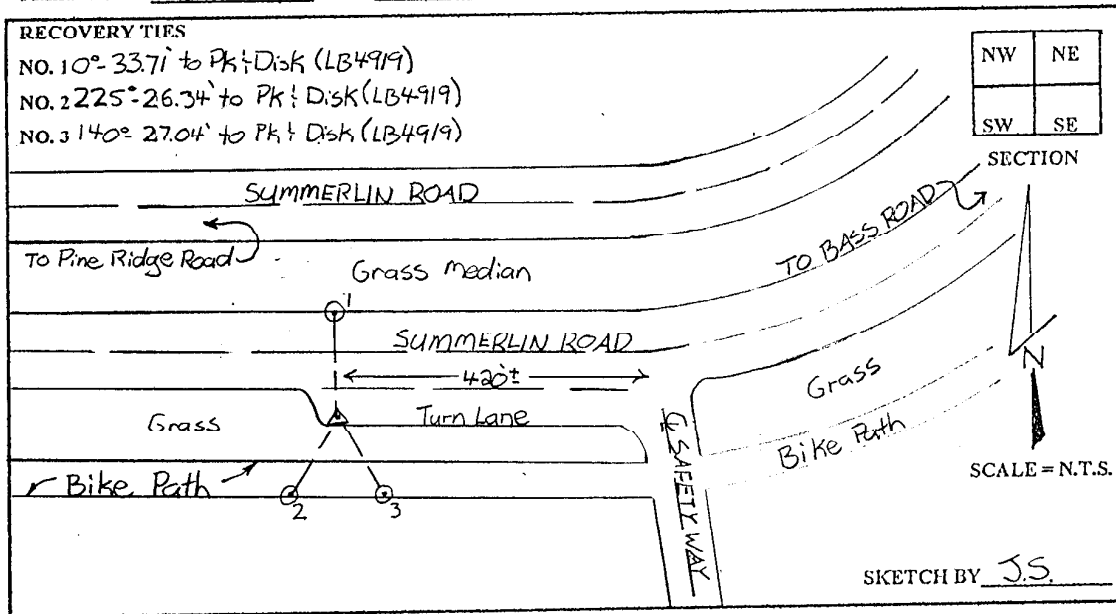 RECOVERY TIES
NO. 1 0°- 33.71' to Pk & Disk (LB4919)
NO. 2 225°-26.34' to Pk & Disk (LB4919)
NO. 3 140°- 27.04' to Pk & Disk (LB4919)
NW NE
SW SE
SECTION
SUMMERLIN ROAD
To Pine Ridge Road
Grass Median
TO BASS ROAD
1
SUMMERLIN ROAD
420'±
N
Grass
Turn Lane
Grass
Bike Path
Bike Path
2
3
℄ SAFETY WAY
SCALE = N.T.S.
SKETCH BY J.S.